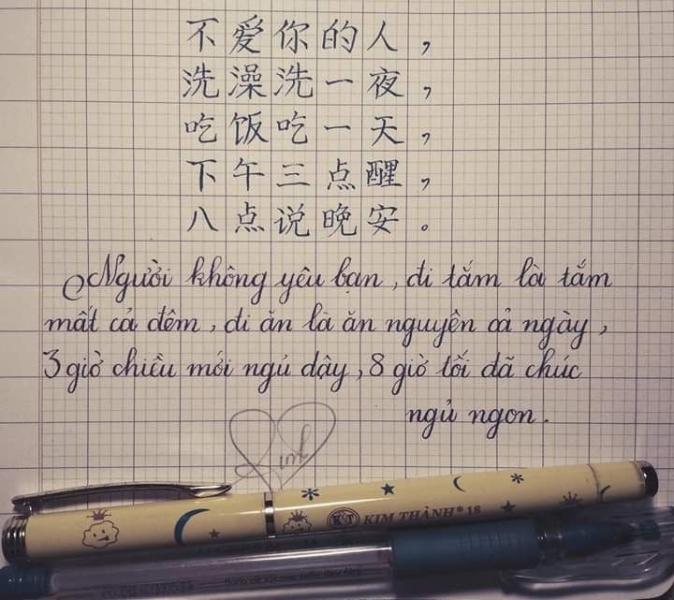 不爱你的人，
洗澡洗一夜，
吃饭吃一天，
下午三点醒，
八点说晚安。
Người không yêu bạn, đi tắm là tắm
mất cả đêm, đi ăn là ăn nguyên cả ngày,
3 giờ chiều mới ngủ dậy, 8 giờ tối đã chúc
ngủ ngon.
KT KIM THÀNH® 18